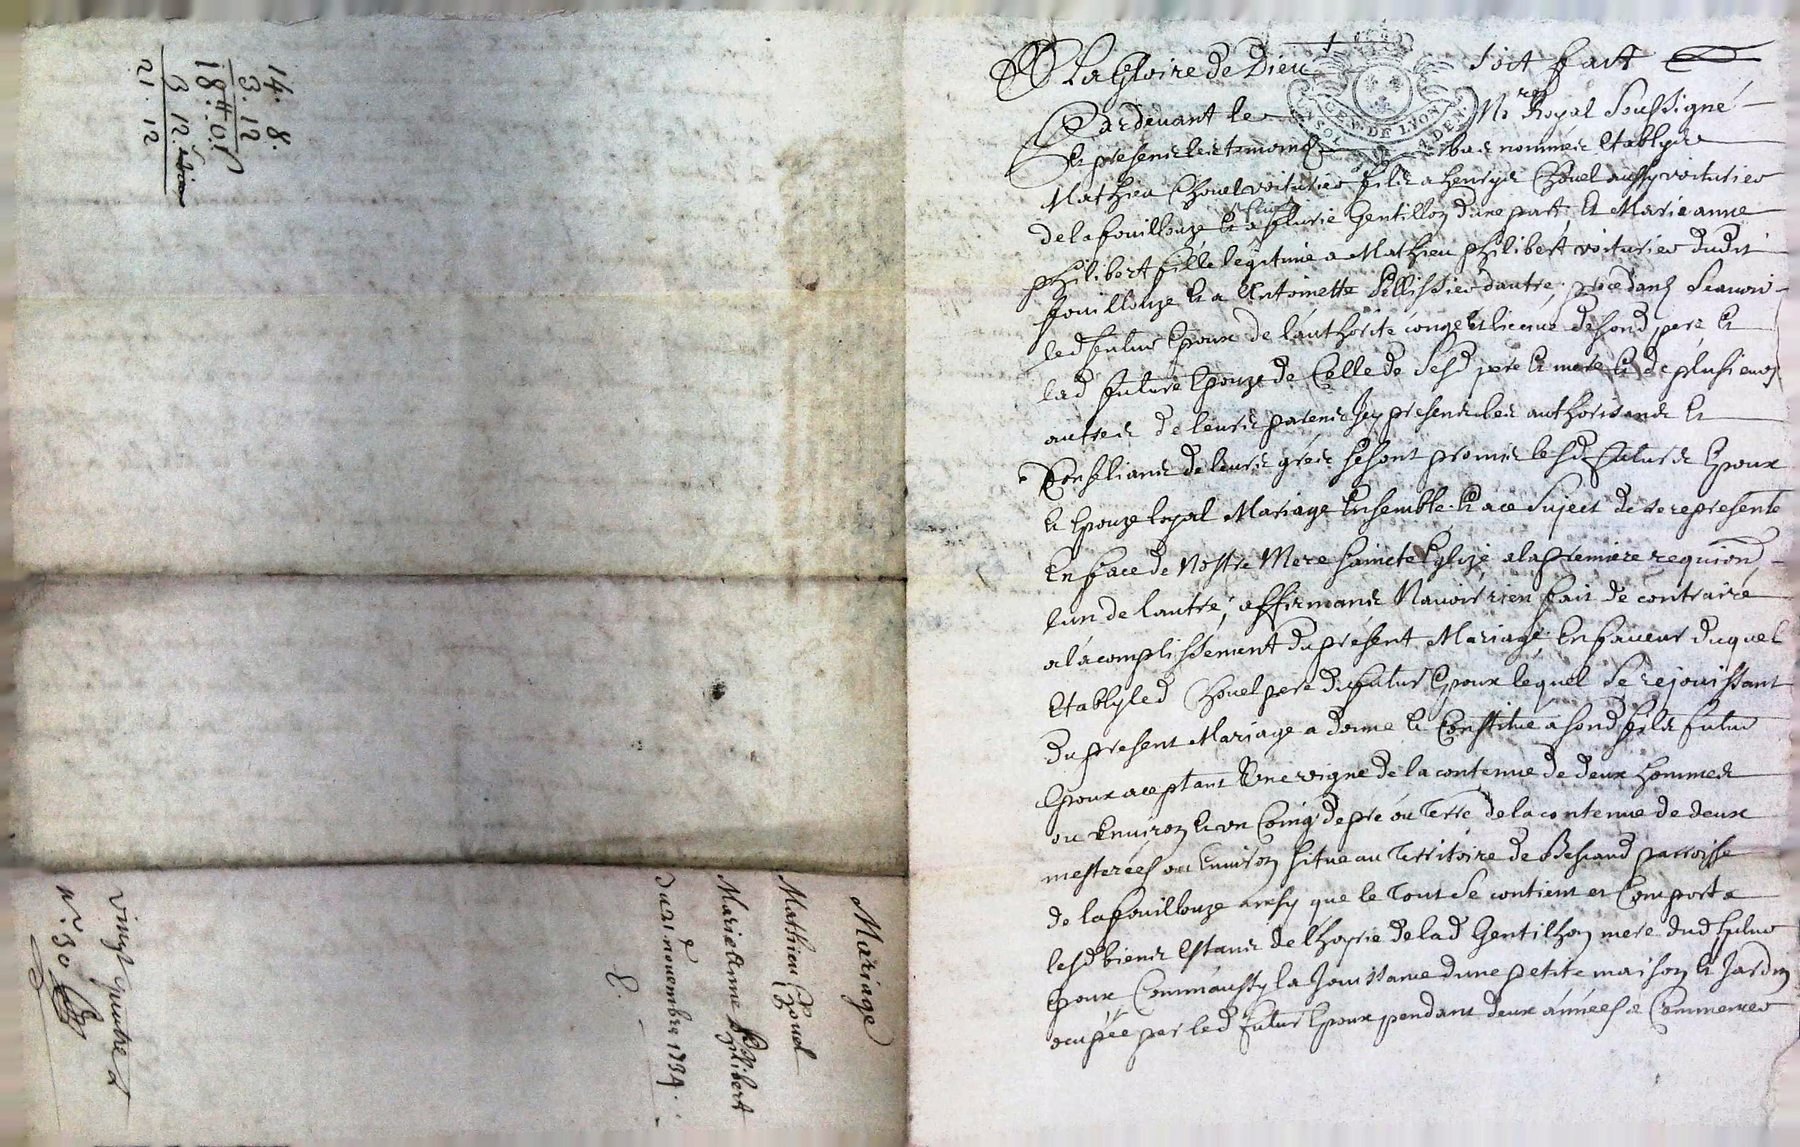 14. 8.
3. 12
18tt. 0. s
3. 12. s
21. 12
Mariage
Mathieu Chouel
Marie Anne Philibert
Du 21e novembre 1734.
vingt quatre s
No 30
A La Gloire de Dieu soit fait
GEN. DE LYON
Pardevant le Nre Royal Soussigné
Et presents les temoins bas nommés Etablys
Mathieu Chouel voiturier fils a henrys Chouel aussy voiturier
de la fouillouze et a fleurie Gentillon d'une part Et Marie anne
philibert fille legitime a Mathieu philibert voiturier dudit
fouillouze Et a Antoinette Pellissier d'autre, procedants scavoir
led futur Epoux de l'authorite congé et licence de sond pere Et
lad future Epouze de Celle de sesd pere Et mere Et de plusieurs
autres de leurs parents Icy presents les authorisants Et
Conseliants de leurs grés se sont promis lesd futurs Epoux
Et Epouze loyal Mariage Ensemble Et a ce suject de se represente
En face de Nostre Mere saincte Eglize a la premiere requiond
l'un de l'autre, affirmants N'avoir rien fait de contraire
a l'acomplissement du present Mariage, En faveur duquel
Etably led Chouel pere du futur Epoux lequel se rejouissant
du present Mariage a donné Et Constitue a sond fils futur
Epoux aceptant Une vigne de la contenue de deux hommes
ou Environ Et un Coing de pre ou Terre de la contenue de deux
mesterées ou Environ situe au Territoire de parroisse
de la fouillouze ainsy que le Tout se contient et Comporte
lesd biens Estants de l'hoyrie de lad Gentilhon mere dud futur
Epoux Comm'aussy la Jouissance d'une petite maison Et Jardin
ocupée par led futur Epoux pendant deux années a Commencer